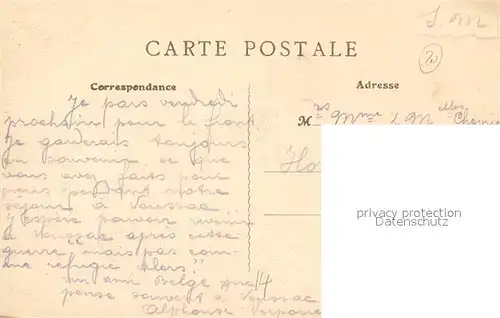 S. M
20
CARTE POSTALE
Correspondance
Adresse
Je pars vendredi
prochain pour le front
Je garderais toujours
un souvenir ce que
vous avez faits pour
mois pendant notre
séjour à Soussac
J'espère pouvoir revenir
à Soussac après cette
guerre "mais pas com-
me refugié alors"
un ami Belge que
pense souvent à Soussac
Alphonse
M rs Mme & M elles
Ho
14
privacy protection
www.ansichtskarten-center.de